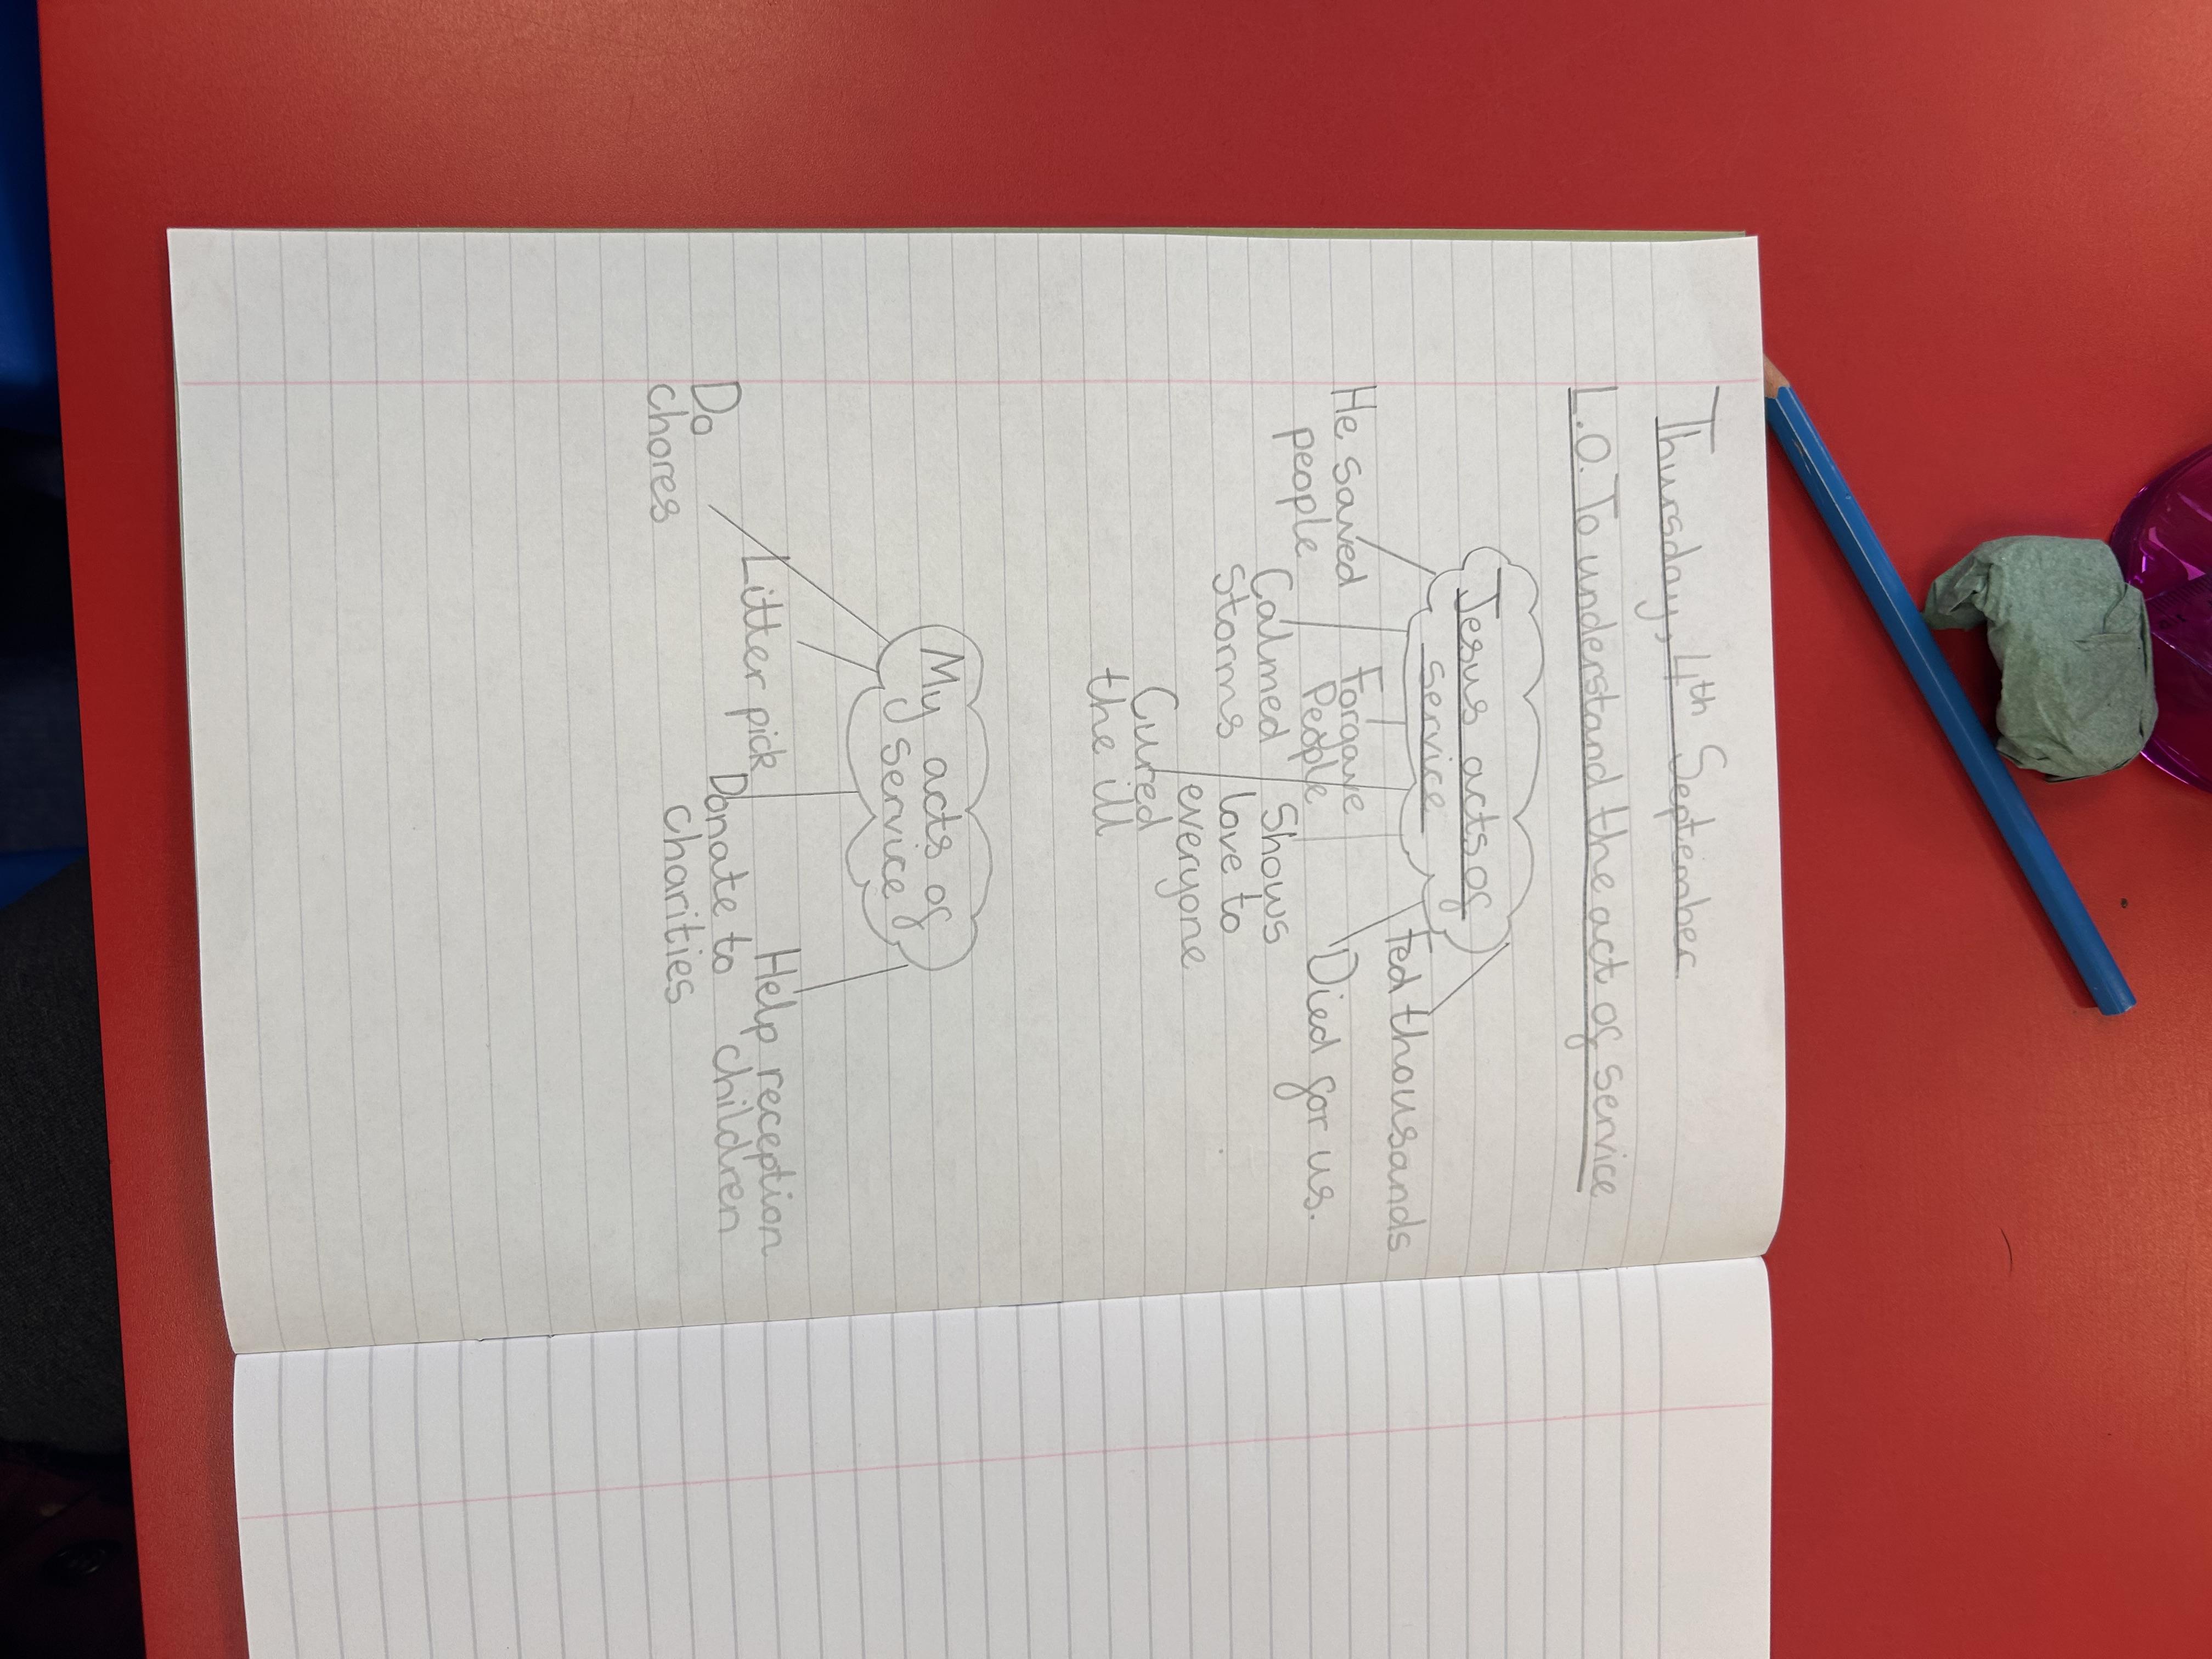 Thursday, 4th September
L.O. To understand the act of service
Jesus acts of
service
He saved
people
Calmed
storms
Forgave
People
Cured
the ill
Shows
love to
everyone
Died for us.
Fed thousands
My acts of
service
Do
chores
Litter pick
Donate to
charities
Help reception
children